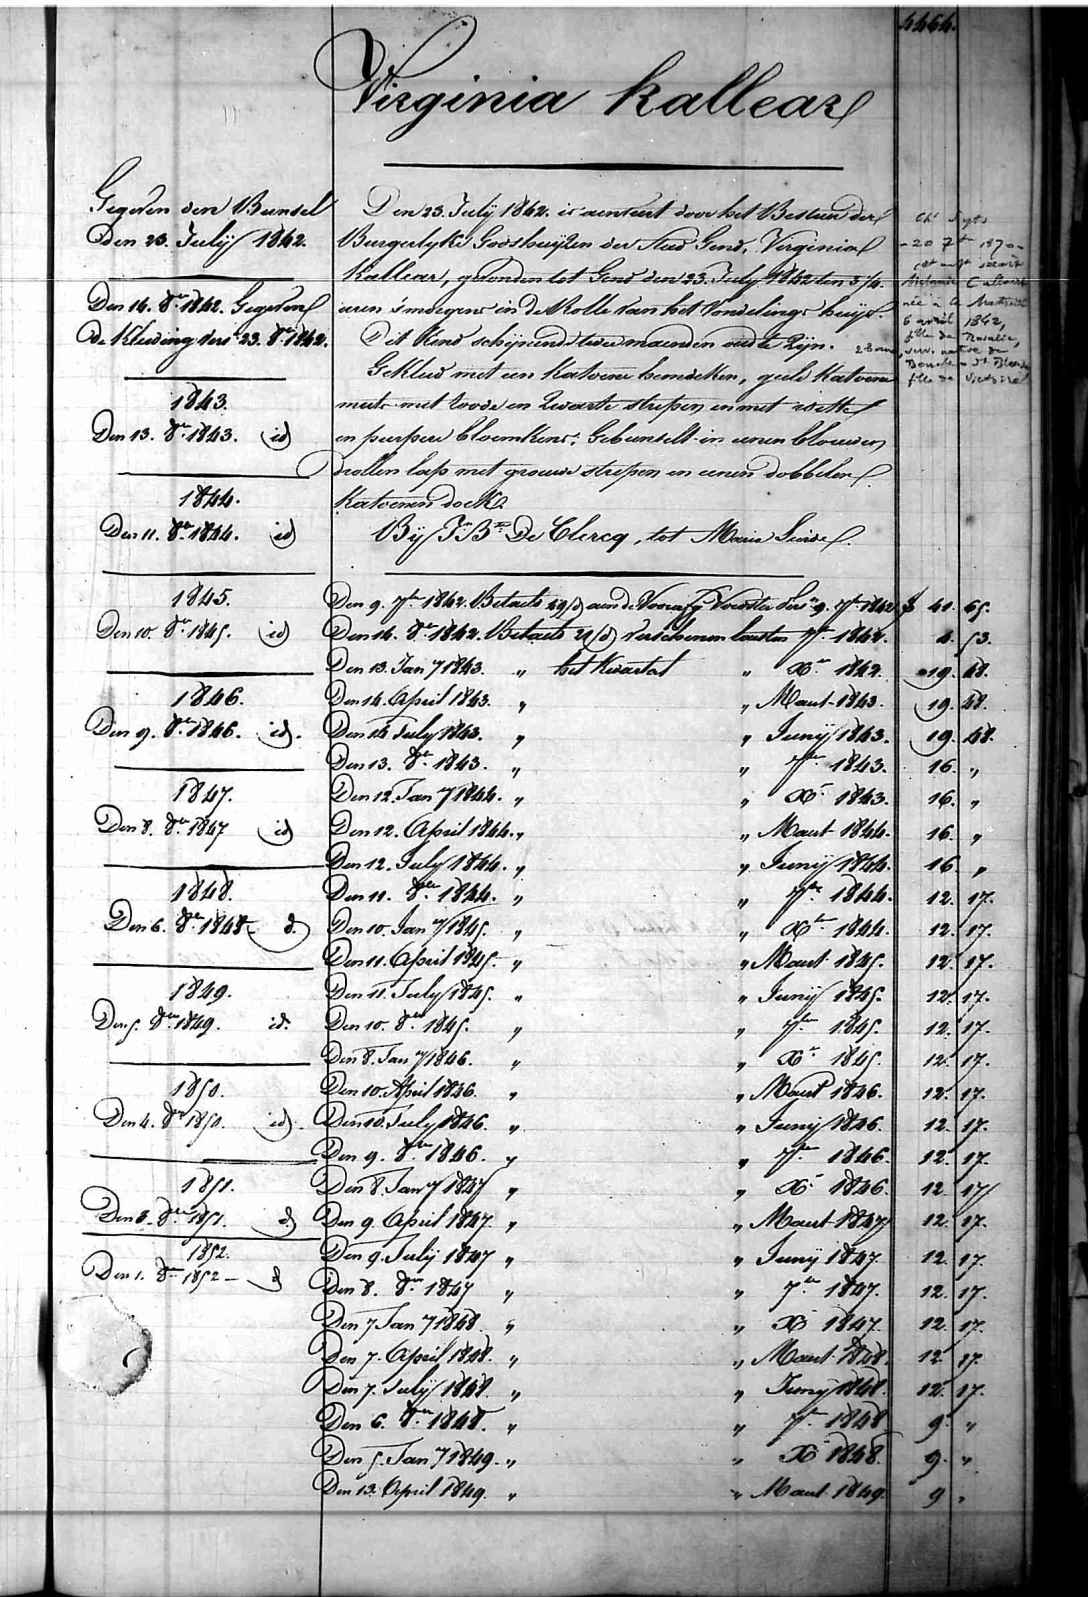 4464.
Virginia Kallear
Gegeven den Bunsel
den 23. July 1842.
Den 14. 8er 1842. Gegeven
de Kleeding ver: 23. 8er 1842.
1843.
Den 13. 8er 1843. id
1844.
Den 11. 8er 1844. id
1845.
Den 10. 8er 1845. id
1846.
Den 9. 8er 1846. id.
1847.
Den 8. 8er 1847 id
1848.
Den 6. 8er 1848 d.
1849.
Den 5. 8er 1849. id.
1850.
Den 4. 8er 1850. id.
1851.
Den 3. 8er 1851. d
1852.
Den 1. 8er 1852 - d
Den 23. July 1842. is aenveert door het Bestuer der
Burgerlyke Godshuijzen der Stad Gend, Virginia
Kallear, gevonden tot Gend den 23. July 1842 ten 3 1/4.
uren s'morgens in de Rolle van het Vondelings huijs.
Dit Kind schijnende twee maenden oud te Zijn.
Gekleed met een Katoene hemdeken, geele Katoene
muts met roode en Zwarte strepen en met witte
en peerpere bloemkens. Gebunselt in eenen blouwen
drollen lap met grouwe strepen en eenen dobbelen
Katoenen doek.
By J. Bte De Clercq, tot Maria
20 7bre 1870
née à
6 avril 1842,
fille de Rosalie,
28 ans,
fille de
Den 9. 7er 1842. Betaelt 49/d aen de 9. 7er 1842 f 41. 65.
Den 14. 8er 1842. Betaelt 21/d verschenen lausten 7er 1842. 4. 53.
Den 13. Jany 1843. „ het Kwartael „ Xr 1842 19. 48.
Den 14. April 1843. „ „ Maert 1843. 19. 48.
Den 14 July 1843. „ „ Junij 1843. 19. 48.
Den 13. 8er 1843. „ „ 7er 1843. 16. „
Den 12. Jany 1844. „ „ Xr 1843. 16. „
Den 12. April 1844. „ „ Maert 1844. 16. „
Den 12. July 1844. „ „ Junij 1844. 16 „
Den 11. 8er 1844. „ „ 7er 1844. 12. 17.
Den 10. Jany 1845. „ „ Xr 1844. 12. 17.
Den 11. April 1845. „ „ Maert 1845. 12. 17.
Den 11. July 1845. „ „ Junij 1845. 12. 17.
Den 10. 8er 1845. „ „ 7er 1845. 12. 17.
Den 8. Jany 1846. „ „ Xr 1845. 12. 17.
Den 10. April 1846. „ „ Maert 1846. 12. 17.
Den 10. July 1846. „ „ Junij 1846. 12. 17.
Den 9. 8er 1846. „ „ 7er 1846. 12. 17.
Den 8. Jany 1847 „ „ Xr 1846. 12. 17
Den 9. April 1847. „ „ Maert 1847 12. 17.
Den 9. July 1847 „ „ Junij 1847. 12. 17.
Den 8. 8er 1847 „ „ 7er 1847. 12. 17.
Den 7 Jany 1848. „ „ Xr 1847. 12. 17.
Den 7. April 1848. „ „ Maert 1848. 12 17.
Den 7. July 1848. „ „ Junij 1848. 12. 17.
Den 6. 8er 1848. „ „ 7er 1848 9. „
Den 5. Jany 1849. „ „ Xr 1848. 9. „
Den 13. April 1849. „ „ Maert 1849. 9 „